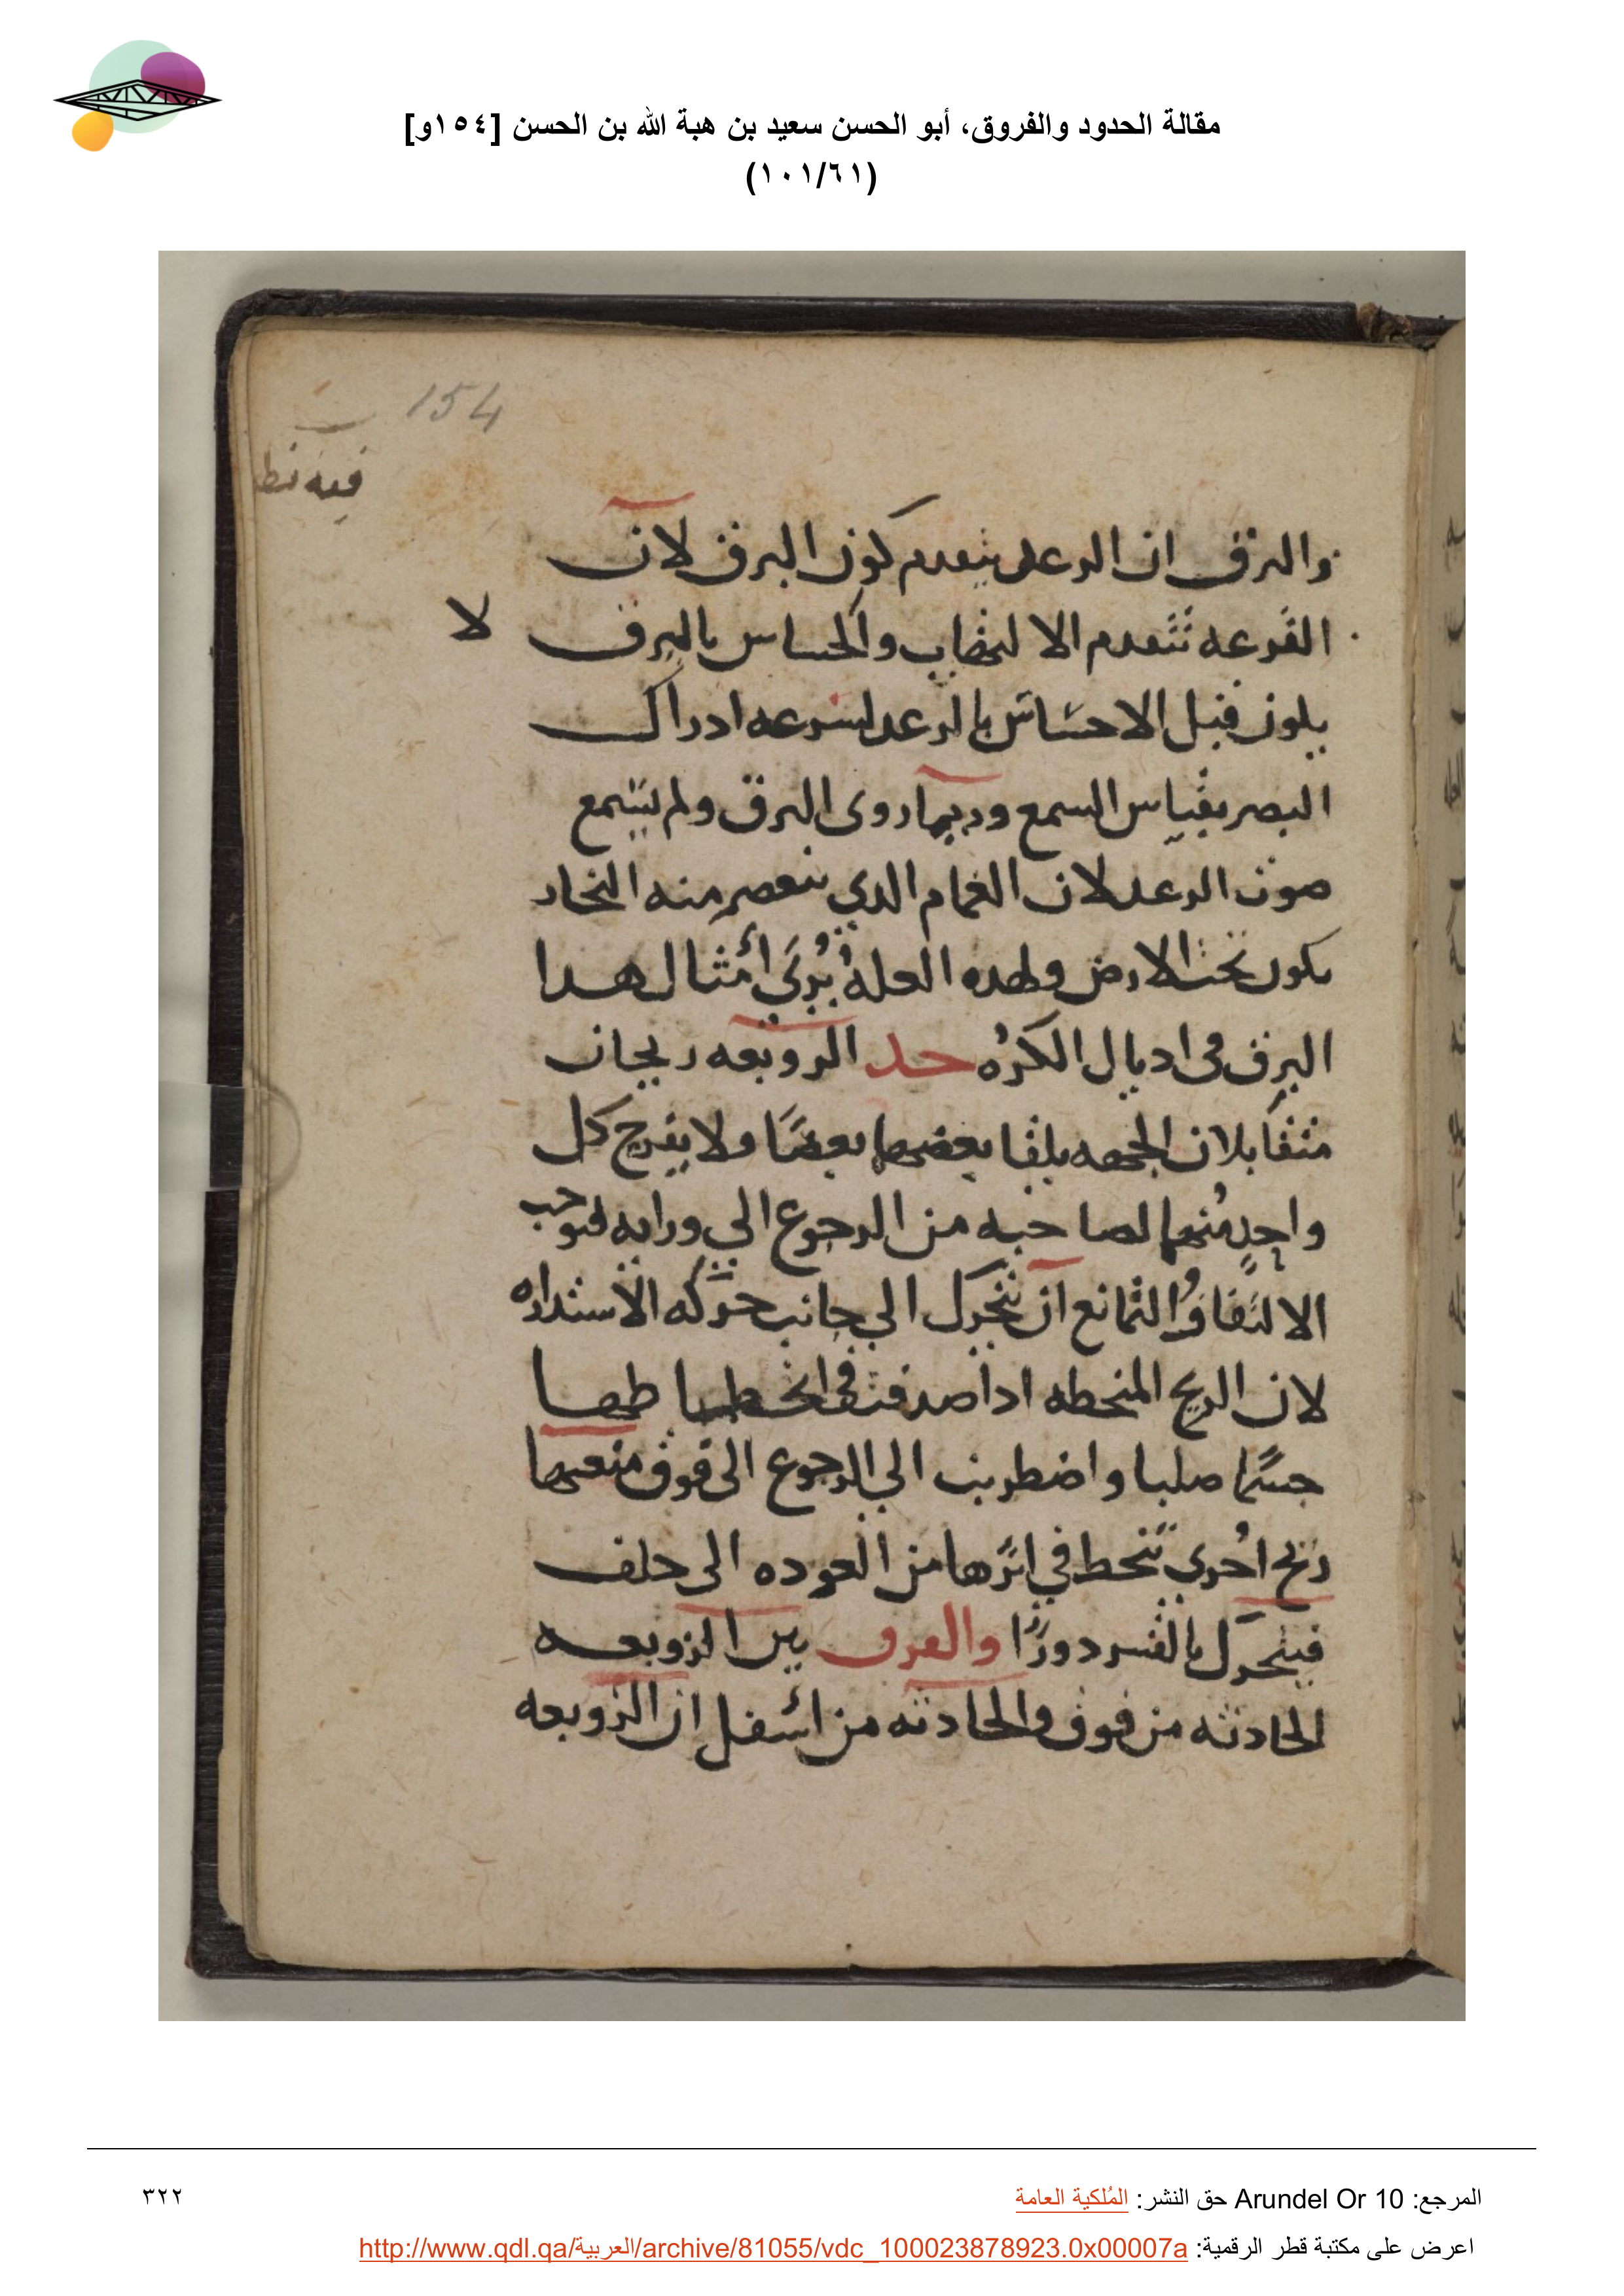 مقالة الحدود والفروق، أبو الحسن سعيد بن هبة الله بن الحسن [١٥٤و]
(١٠١/٦١)
154
فيه نظ
والبرق ان الرعد يتقدم كون البرق لان
القرعه تتقدم الا لتهاب والحساس بالبرق لا
يكون قبل الاحساس بالرعد لسرعه ادراك
البصر بقياس السمع وربما روى البرق ولم يسمع
صوت الرعد لان الغمام الدي ينعصر منه البخار
يكون تحت الارض ولهده العله يُرَي أمثال هدا
البرق فى اديال الكره حد الزوبعه ريحان
متقابلان الجهه يلقا بعضهما بعضًا ولا يفرج كل
واحدٍ منهما لصاحبه من الرجوع الي ورايه فيوجب
الا لتفاف والتمانع ان تتحرك الي جانب حركه الاستداره
لان الريح المنحطه ادا صدفت في انحطاطها
جسمًا صلبا واضطربت الي الرجوع الى فوق منعها
ريح اخري تنحط في اثرها من العوده الى خلف
فيتحرك بالقسر دورًا والفرق بين الزوبعه
الحادثه من فوق والحادثه من اسفل ان الزوبعه
المرجع: Arundel Or 10 حق النشر: المُلكية العامة
٣٢٢
اعرض على مكتبة قطر الرقمية: http://www.qdl.qa/العربية/archive/81055/vdc_100023878923.0x00007a